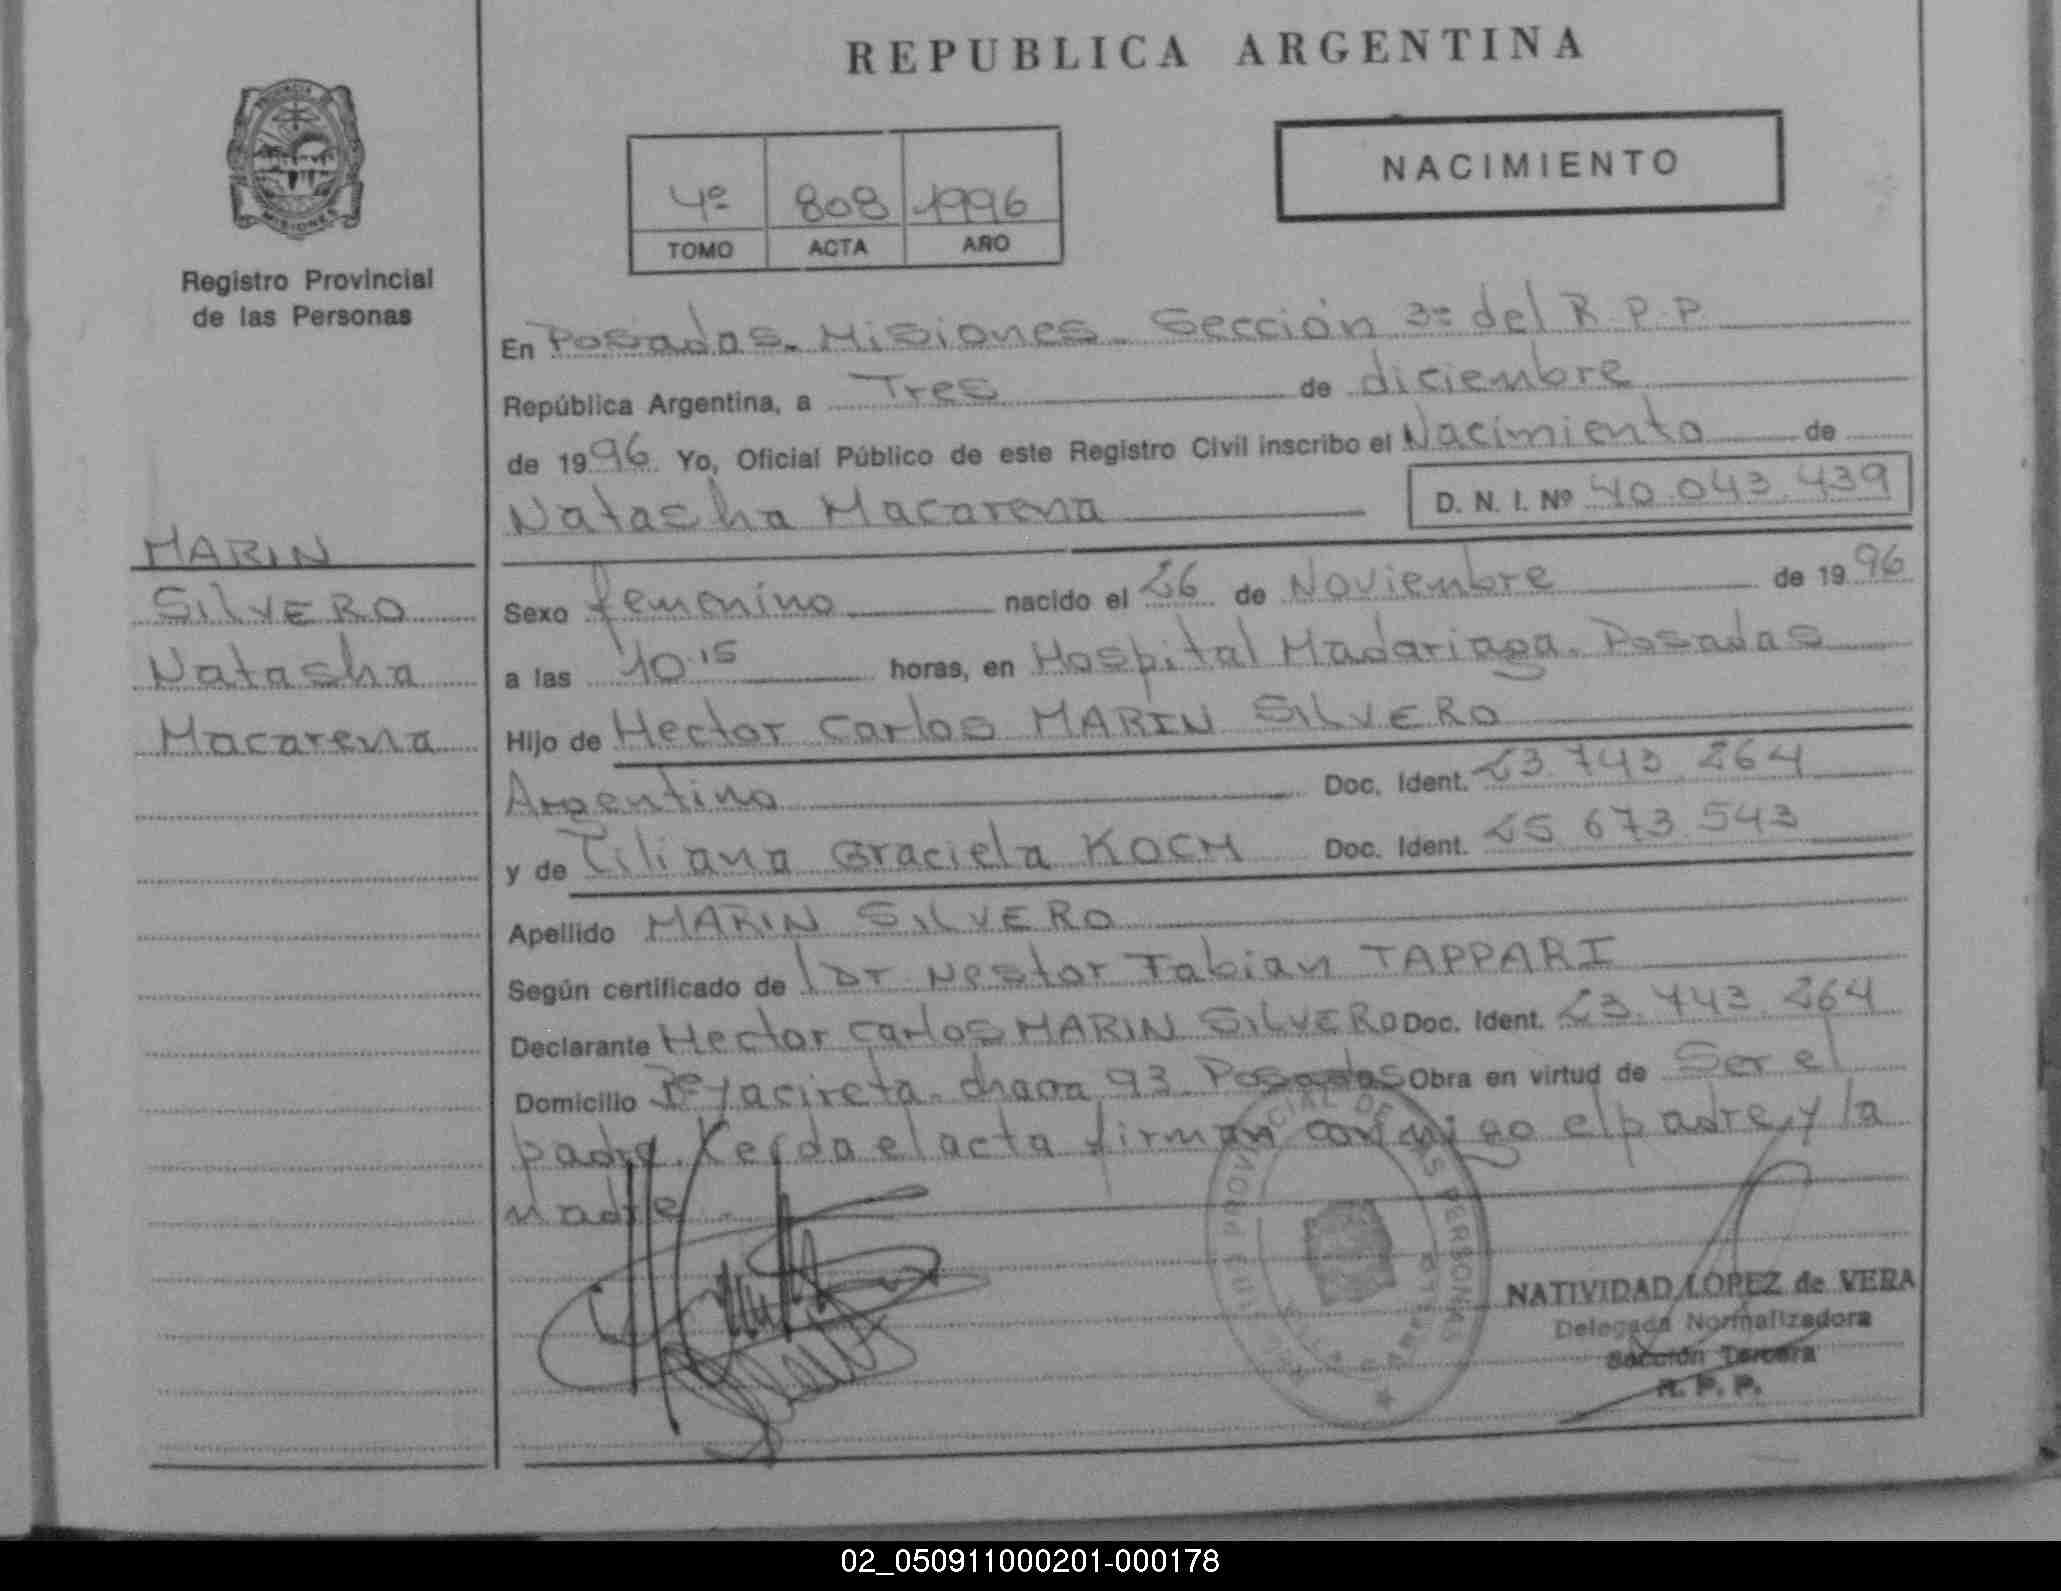 REPUBLICA ARGENTINA
NACIMIENTO
4º 808 1996
TOMO ACTA AÑO
MISIONES
Registro Provincial
de las Personas
MARIN
SILVERO
Natasha
Macarena
En Posadas. Misiones. Sección 3º del R.P.P
República Argentina, a Tres de diciembre
de 1996 Yo, Oficial Público de este Registro Civil inscribo el Nacimiento de
Natasha Macarena D. N. I. Nº 40.043.439
Sexo femenino nacido el 26 de Noviembre de 1996
a las 10.15 horas, en Hospital Madariaga. Posadas
Hijo de Hector Carlos MARIN SILVERO
Argentino Doc. Ident. 23.743.264
y de Liliana Graciela KOCH Doc. Ident. 25.673.543
Apellido MARIN SILVERO
Según certificado de Dr Nestor Fabian TAPPARI
Declarante Hector Carlos MARIN SILVERO Doc. Ident. 23.743.264
Domicilio Yacireta. chacra 93 Posadas Obra en virtud de Ser el
padre. Leída el acta firman conmigo el padre y la
madre.
PROVINCIAL DE LAS PERSONAS
NATIVIDAD LOPEZ de VERA
Delegada Normalizadora
Sección Tercera
R. P. P.
02_050911000201-000178